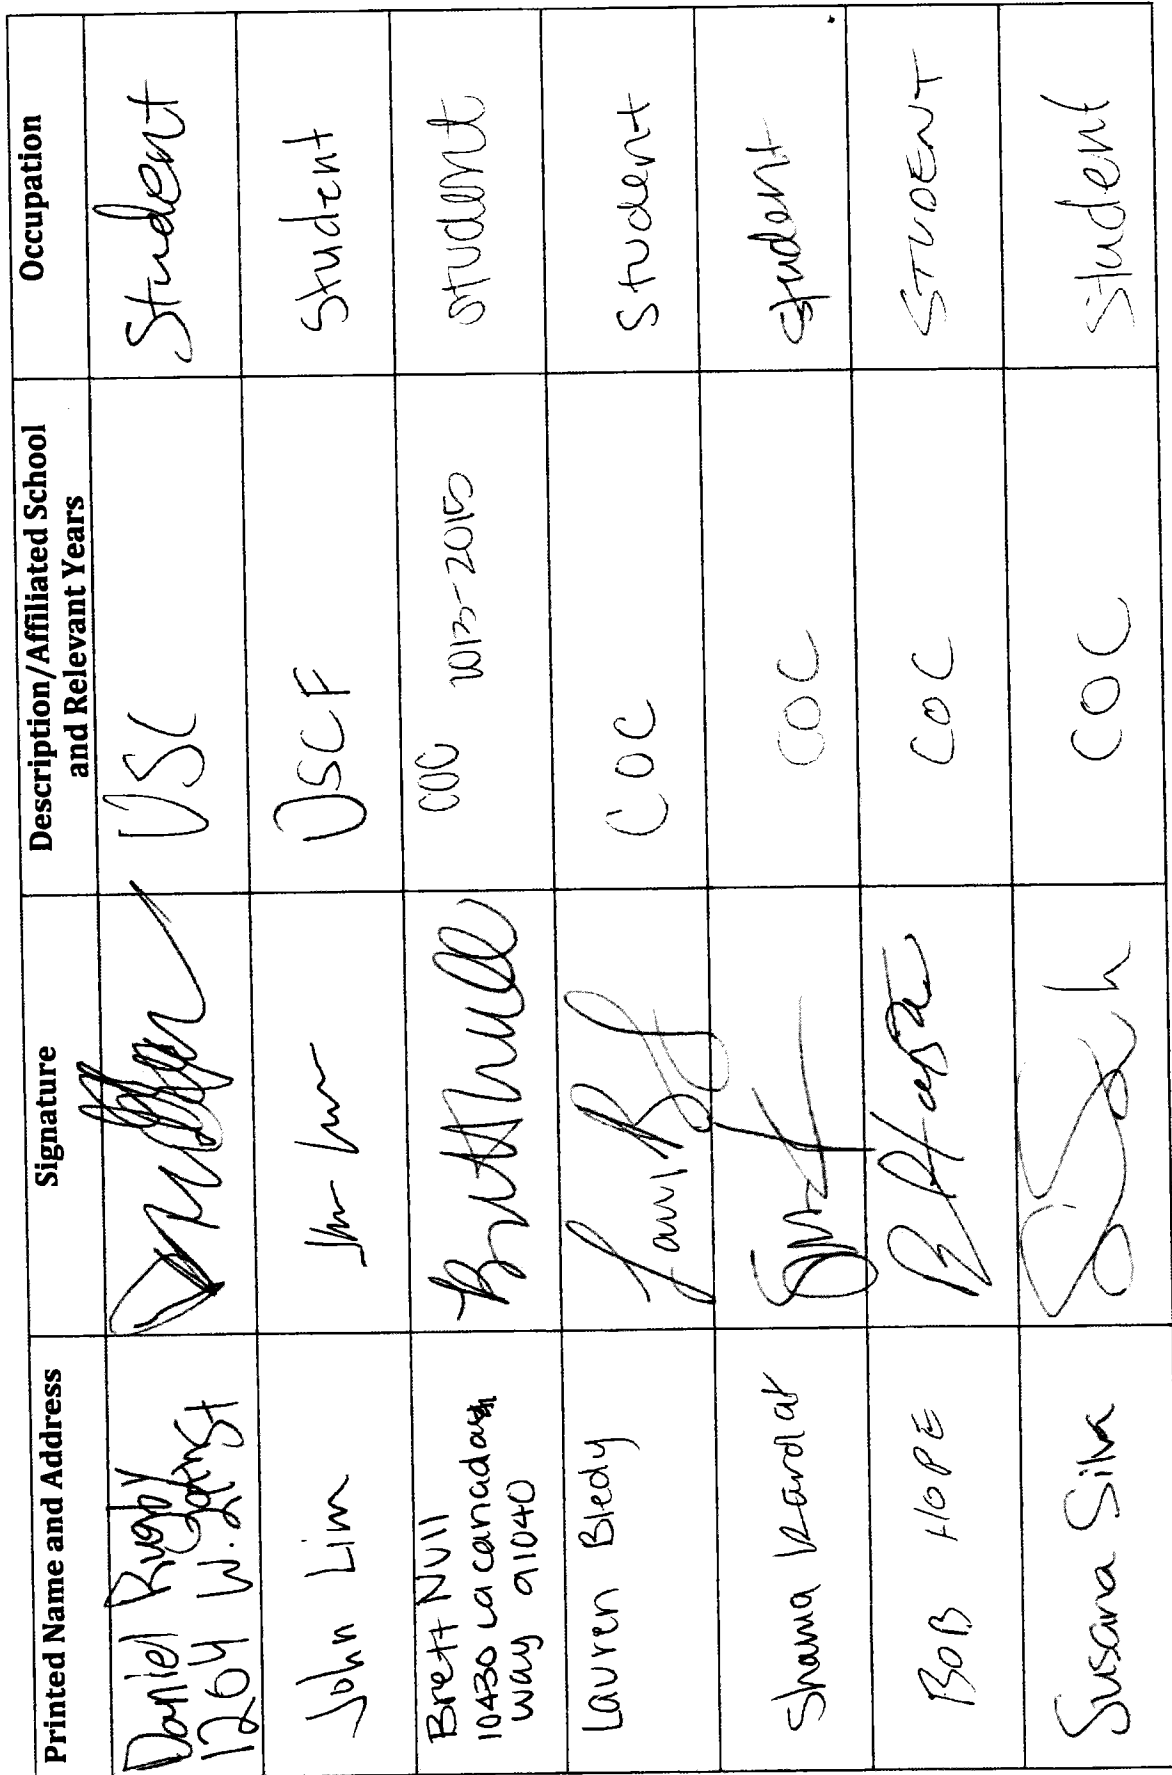 Printed Name and Address
Signature
Description/Affiliated School
and Relevant Years
Occupation
Daniel Rugby
1204 W.
USC
Student
John Lim
USCF
Student
Brett Null
10430 La canada
way 91040
COC 2013-2015
student
Lauren Bledy
COC
Student
Shawna
COC
student
BOB HOPE
COC
STUDENT
Susana Silva
COC
Student